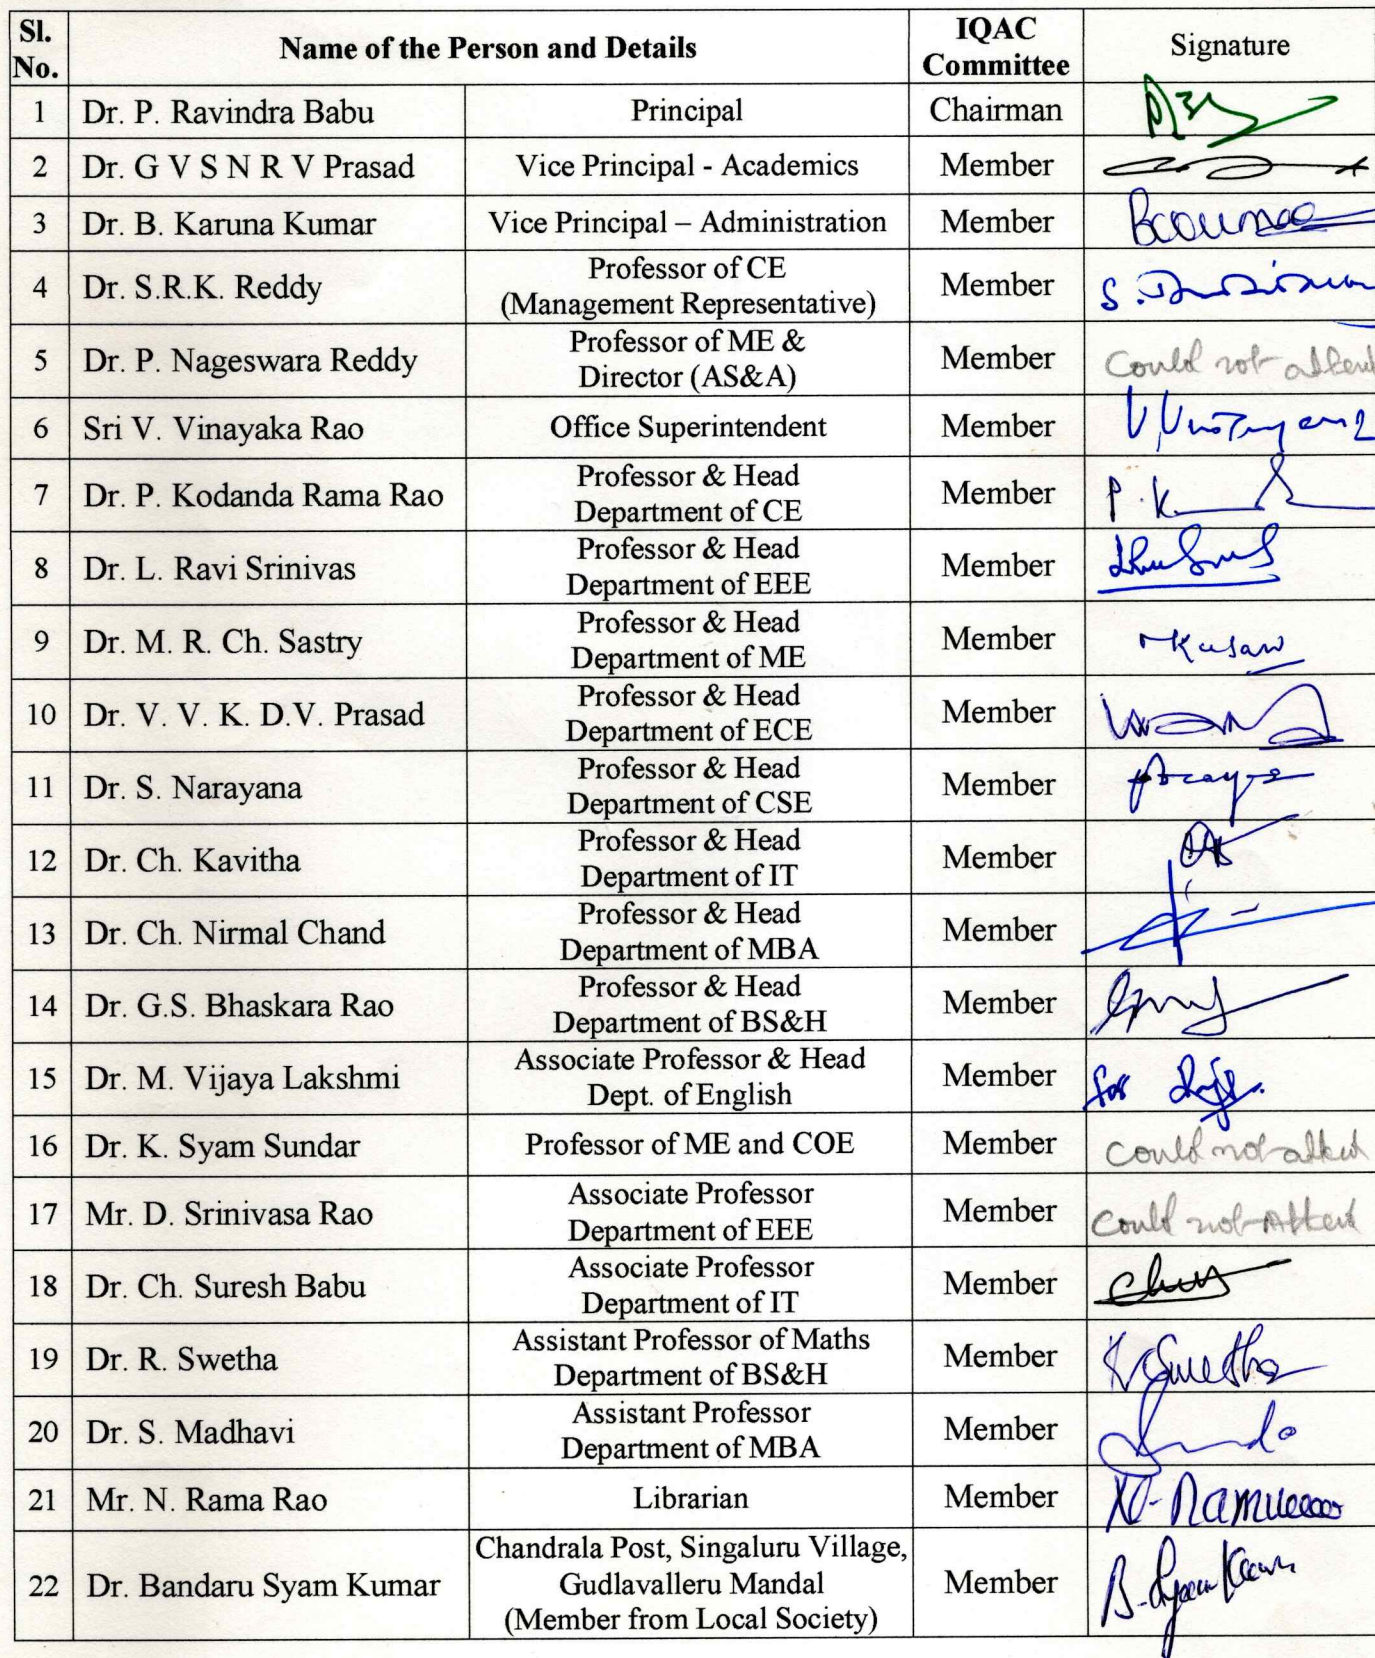 Sl. No. Name of the Person and Details IQAC Committee Signature
1 Dr. P. Ravindra Babu Principal Chairman
2 Dr. G V S N R V Prasad Vice Principal - Academics Member
3 Dr. B. Karuna Kumar Vice Principal – Administration Member
4 Dr. S.R.K. Reddy Professor of CE (Management Representative) Member
5 Dr. P. Nageswara Reddy Professor of ME & Director (AS&A) Member Could not attend
6 Sri V. Vinayaka Rao Office Superintendent Member
7 Dr. P. Kodanda Rama Rao Professor & Head Department of CE Member P.K
8 Dr. L. Ravi Srinivas Professor & Head Department of EEE Member
9 Dr. M. R. Ch. Sastry Professor & Head Department of ME Member
10 Dr. V. V. K. D.V. Prasad Professor & Head Department of ECE Member
11 Dr. S. Narayana Professor & Head Department of CSE Member
12 Dr. Ch. Kavitha Professor & Head Department of IT Member
13 Dr. Ch. Nirmal Chand Professor & Head Department of MBA Member
14 Dr. G.S. Bhaskara Rao Professor & Head Department of BS&H Member
15 Dr. M. Vijaya Lakshmi Associate Professor & Head Dept. of English Member for
16 Dr. K. Syam Sundar Professor of ME and COE Member Could not attend
17 Mr. D. Srinivasa Rao Associate Professor Department of EEE Member Could not Attend
18 Dr. Ch. Suresh Babu Associate Professor Department of IT Member
19 Dr. R. Swetha Assistant Professor of Maths Department of BS&H Member
20 Dr. S. Madhavi Assistant Professor Department of MBA Member
21 Mr. N. Rama Rao Librarian Member
22 Dr. Bandaru Syam Kumar Chandrala Post, Singaluru Village, Gudlavalleru Mandal (Member from Local Society) Member